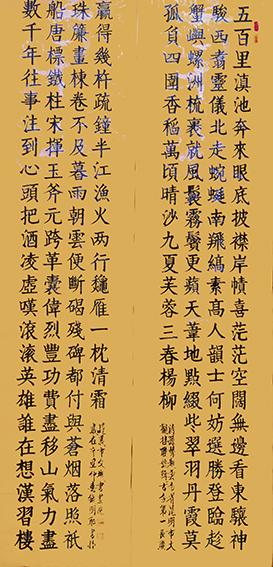 五百里滇池奔來眼底披襟岸幘喜茫茫空闊無邊看東驤神
駿西翥靈儀北走蜿蜒南飛縞素高人韻士何妨選勝登臨趁
蟹嶼螺洲梳裹就風鬟霧鬢更蘋天葦地點綴些翠羽丹霞莫
孤負四圍香稻萬頃晴沙九夏芙蓉三春楊柳
數千年往事注到心頭把酒凌虛嘆滾滾英雄誰在想漢習樓
船唐標鐵柱宋揮玉斧元跨革囊偉烈豐功費盡移山氣力盡
珠簾畫棟卷不及暮雨朝雲便斷碣殘碑都付與蒼烟落照祇
贏得幾杵疏鐘半江漁火两行穐雁一枕清霜